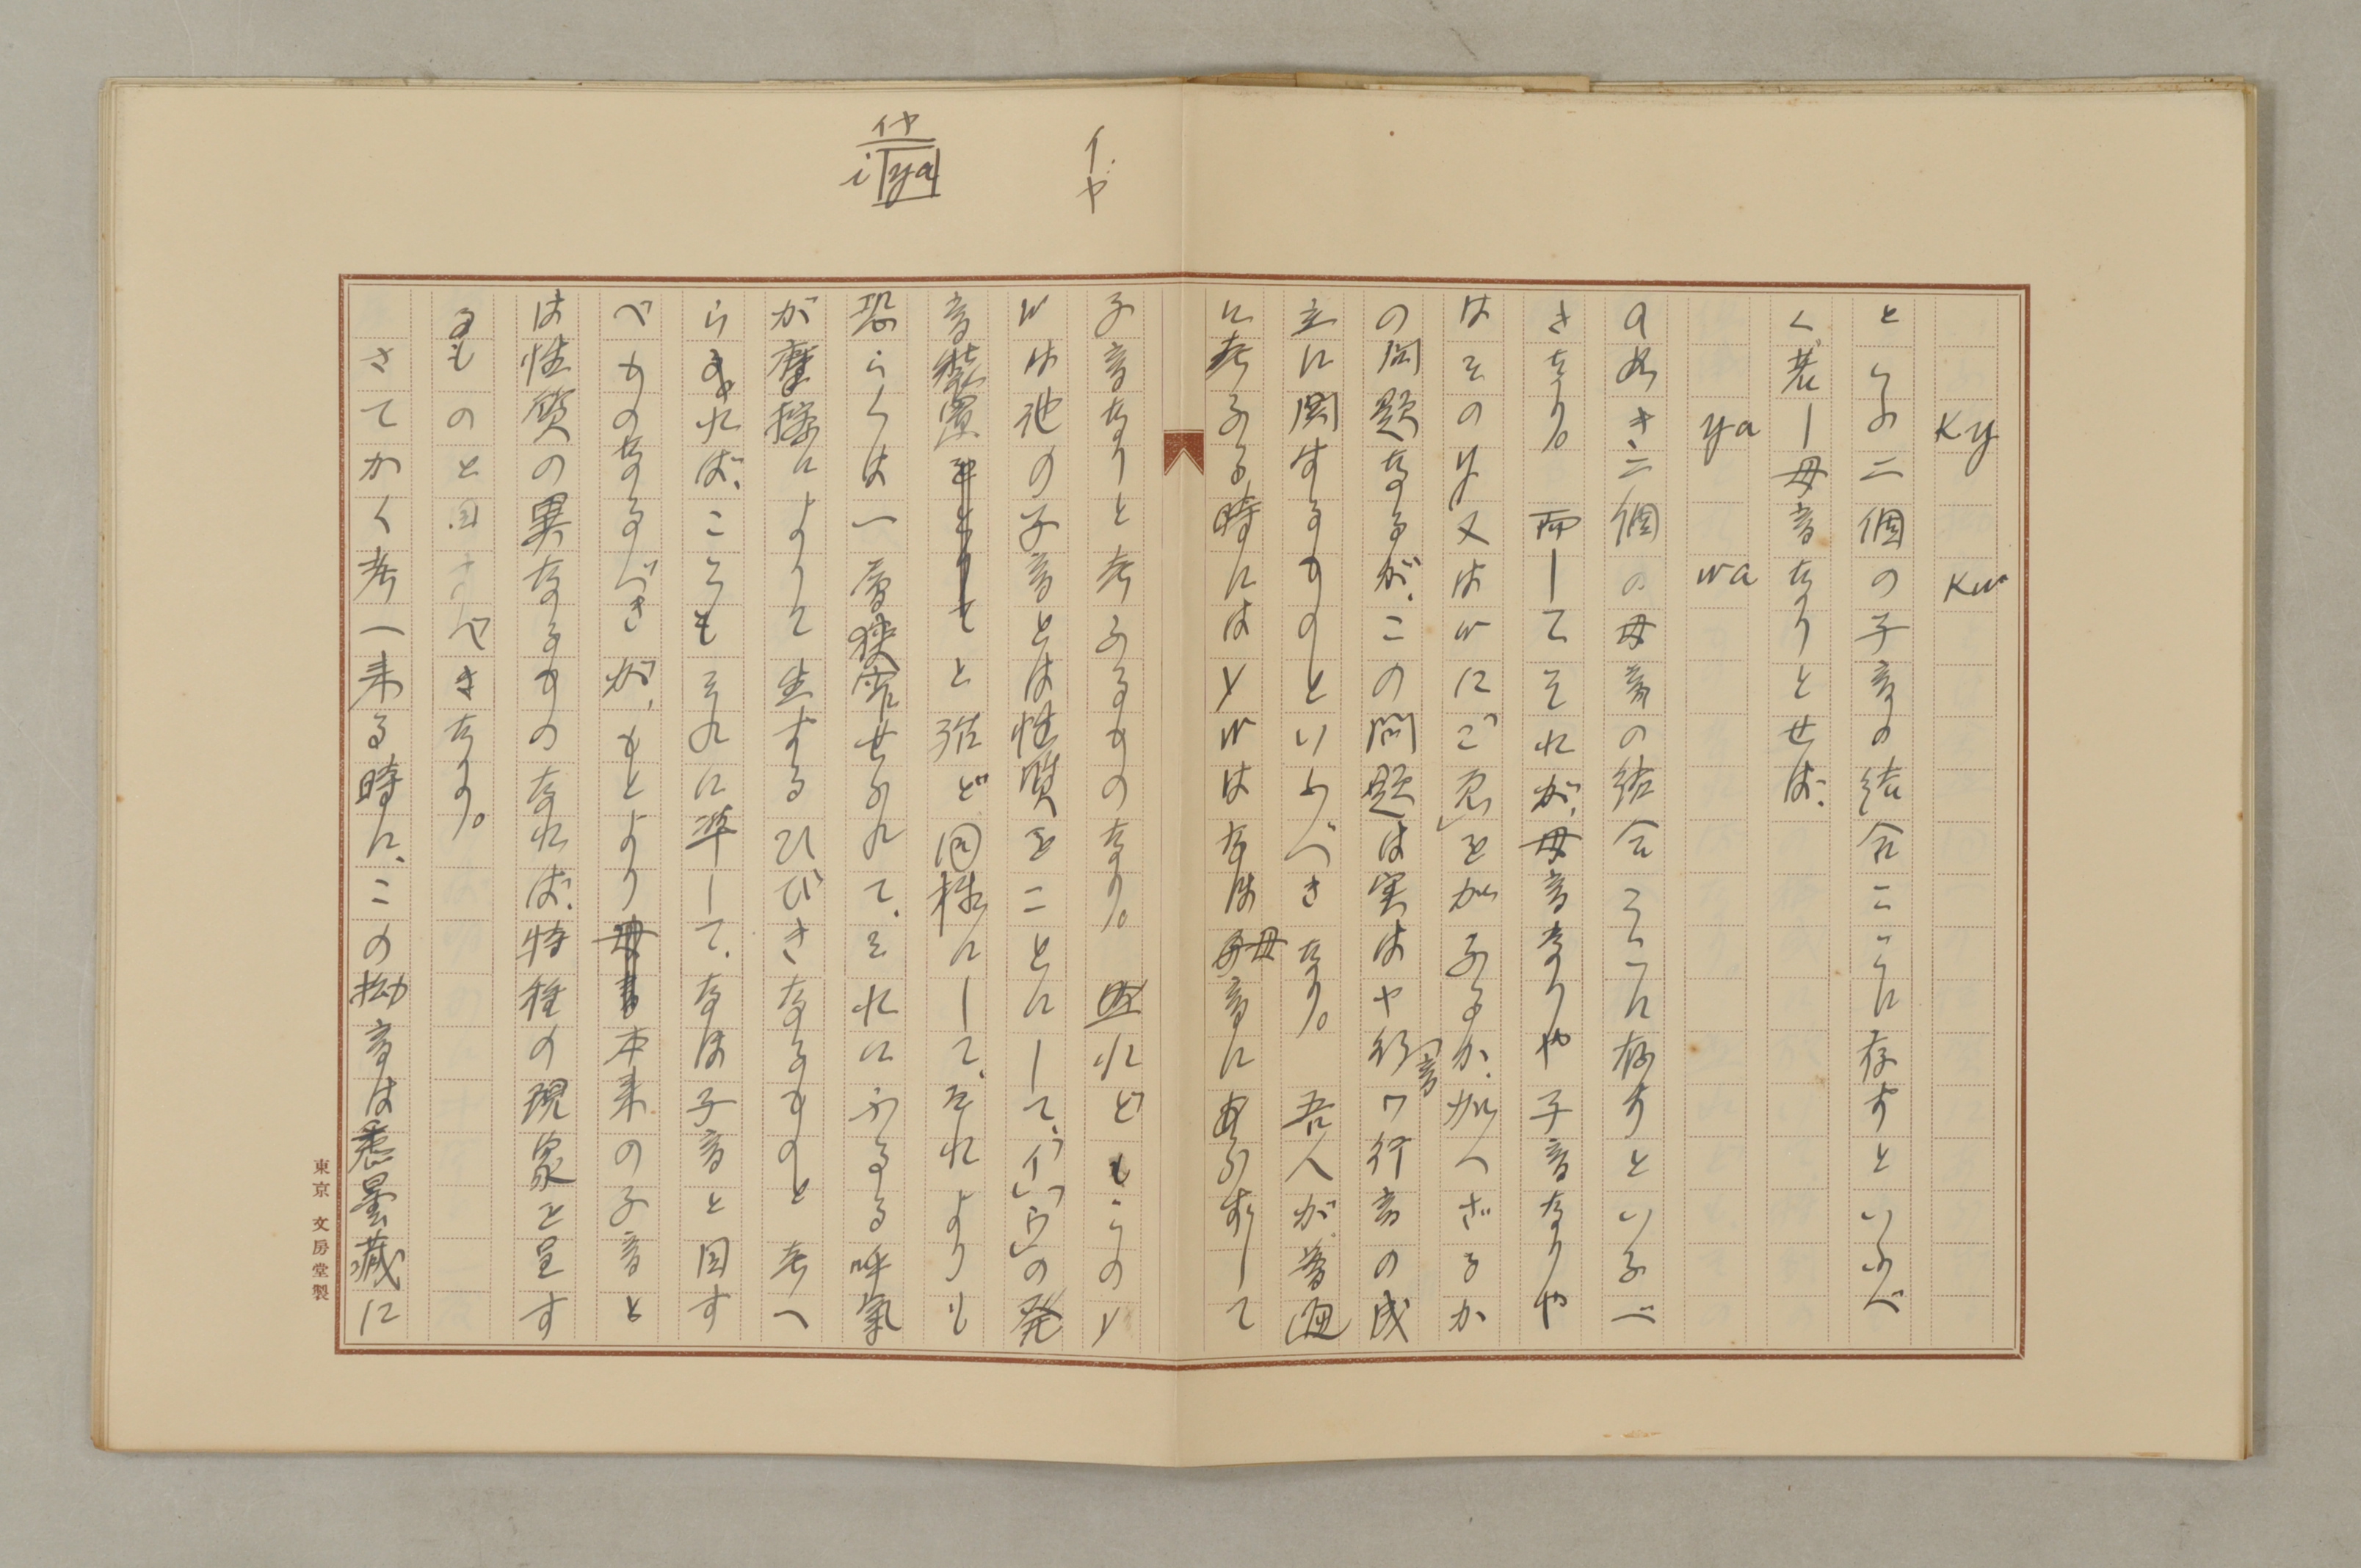 イ:ヤ
イヤ
i ya
ky kw
といふ二個の子音の結合ここに存すといふべ
く若し母音なりとせば、
ya wa
の如き二個の母音の結合ここに存すといふべ
きなり。而してそれが、母音なりや子音なりや
はそのy又はwにご「忽」を加ふるか、加へざるか
の問題なるが、この問題は実はヤ行音ワ行音の成
立に関するものといふべきなり。吾人が普通
に考ふる時にはywはなほ母音にあらずして
子音なりと考ふるものなり。然れどもこのy
wは他の子音とは性質をことにして、「イ」「ウ」の発
音装置と殆ど同様にして、それよりも
恐らくは一層狭窄せられて、それにふるる呼氣
が摩擦によりて生ずるひびきなるものと考へ
らるれば、ここもそれに準じて、なほ子音と目す
べものなるべきが、もとより本来の子音と
は性質の異なるものなれば、特種の現象を呈す
るものと目すべきなり。
さてかく考へ来る時に、この拗音は悉曇蔵に
東京 文房堂製